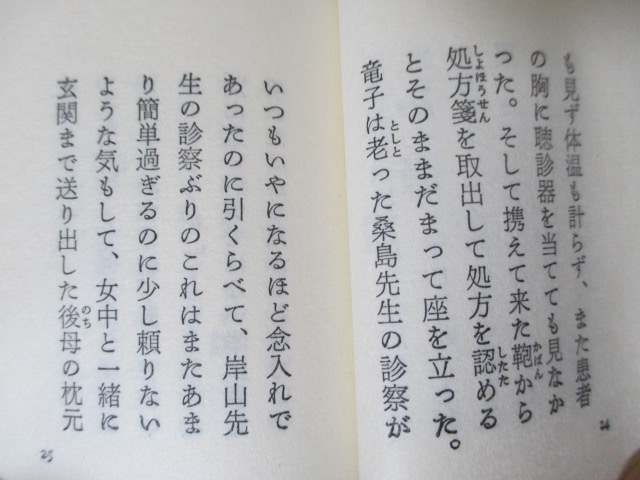 も見ず体温も計らず、また患者
の胸に聴診器を当てても見なか
った。そして携えて来た鞄から
処方箋を取出して処方を認める
とそのままだまって座を立った。
竜子は老った桑島先生の診察が
24
いつもいやになるほど念入れで
あったのに引くらべて、岸山先
生の診察ぶりのこれはまたあま
り簡単過ぎるのに少し頼りない
ような気もして、女中と一緒に
玄関まで送り出した後母の枕元
25